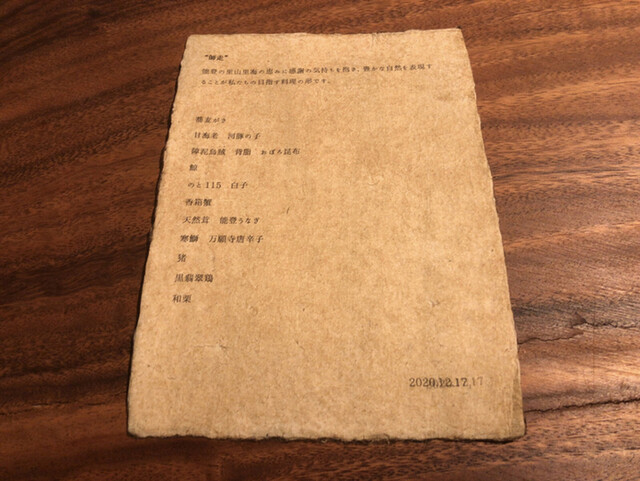 "師走"
能登の里山里海の恵みに感謝の気持ちを抱き、豊かな自然を表現す
ることが私たちの目指す料理の形です。
蕎麦がき
甘海老 河豚の子
障泥烏賊 背脂 おぼろ昆布
鯨
のと115 白子
香箱蟹
天然茸 能登うなぎ
寒鰤 万願寺唐辛子
猪
黒翡翠鶏
和栗
2020.12.17